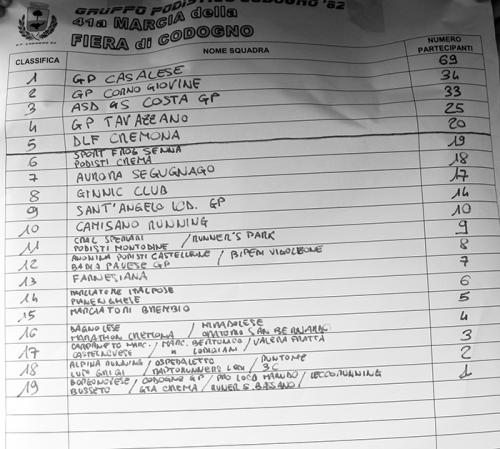 GRUPPO PODISTICO CODOGNO '82
41a MARCIA della
FIERA di CODOGNO
CLASSIFICA NOME SQUADRA NUMERO PARTECIPANTI
1 GP CASALESE 69
2 GP CORNO GIOVINE 34
3 ASD GS COSTA GP 33
4 GP TAVAZZANO 25
5 DLF CREMONA 20
6 SPORT FROG SENNA 19
PODISTI CREMA
7 AURORA SEGUGNAGO 18
8 GINNIC CLUB 17
9 SANT'ANGELO LOD. GP 14
10 CAMISANO RUNNING 10
11 CRAL SPERLARI / RUNNER'S PARK 9
PODISTI MONTODINE
12 ANONIMA PODISTI CASTELLEONE / BIPEM VIGOLEONE 8
BADIA PAVESE GP
13 FARNESIANA 7
14 MARCIATORI ITALPOSE 6
PIANENGHESE
15 MARCIATORI BREMBIO 5
16 BAGNOLESE / MIRADOLESE 4
MARATHON CREMONA / ORATORIO SAN BERNARDO
17 CARPANETO MARC. / MARC. BERTONICO / VALERA FRATTA 3
CASTELNOVESE / " LODIGIANI
18 ALPINA RUNNING / OSPEDALETTO / 2
LUPI GRIGI / RAPTORUNNERS LODI / 3C
19 BORGONOVESE / CODOGNO GP / PRO LOCO MARUDO / LECCORUNNING 1
BUSSETO / GTA CREMA / RUNER'S BASANO /